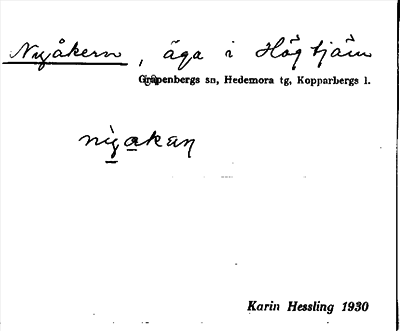 Nyåkern, äga i Högtjärn
Garpenbergs sn, Hedemora tg, Kopparbergs l.
nẏakan
Karin Hessling 1930